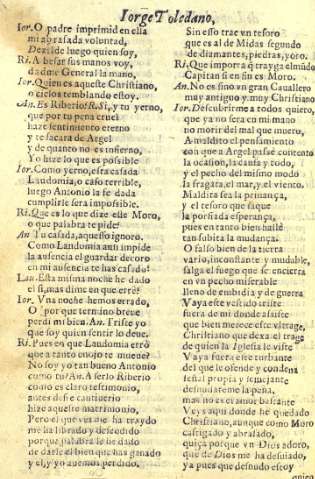 Iorge Toledano,
Ior. O padre imprimid en ella
mi abrasada voluntad,
Dezidle luego quien soy,
Ri. A besar sus manos voy,
dadme General la mano,
Ior. Quien es aqueste Christiano,
o cielos temblando estoy.
An. Es Riberio? R. Si, y tu yerno,
que por tu pena cruel
haze sentimiento eterno
y te sacarà de Argel
y de quanto no es infierno,
Yo hize lo que es possible
Ior. Como yerno, està casada
Laudomia, o caso terrible,
luego Antonio la fe dada
cumplirse serà impossible.
Ri. Que es lo que dize este Moro,
o que palabra te pide?
An Tu casada, aquesso ignoro.
Como Laudomia aussi impide
la ausencia el guardar decoro
en mi ausencia te has casado?
Lau. Esta misma noche he dado
el si, mas dime en que erré?
Ior. Vna noche hemos errado,
O por que termino breue
perdi mi bien An. Triste yo
que soy quien sentir lo deue.
Ri. Pues en que Laudomia errò
que a tanto enojo te mueue?
No soy yo tan bueno Antonio
como tu? An. A sero Riberio
como es claro testimonio,
antes deste cautiuerio
hize aqueste matrimonio,
Pero el que veis me ha traydo
me ha librado y descendido
porque palabra le he dado
de darle el bien que has ganado
y el, y yo auemos perdido.
Sin esso trae vn tesoro
que es al de Midas segundo
de diamantes, piedras, y oro.
Ri. Que importa q̃ trayga el mũdo
Capitan si en fin es Moro.
An. No es sino vn gran Cauallero
muy antiguo y muy Christiano
Ior. Descubrirme a todos quiero,
que ya no sera en mi mano
no morir del mal que muero,
A maldito el pensamiento
con que a Argel passé contento
la ocasion, la causa y todo,
y el pecho del mismo modo
la fragata, el mar, y el viento.
Maldita sea la priuança,
y el tesoro que sigue
la porfiada esperança,
pues en tanto bien halle
tan subita la mudança.
O falso bien de la tierra
vario, inconstante y mudable,
salga el fuego que se encierra
en vn pecho miserable
lleno de embidia y de guerra
Vaya este vestido triste
fuera de mi donde assiste
que bien merece este vltrage,
Christiano que dexa el trage
de quien la Iglesia se viste
Vaya fuera este turbante
del que le ofende y condena
señal propia y semejante
desnudeme la pena,
mas no es el amor bastante
Veys aqui donde he quedado
Christiano, aunque como Moro
castigado y abrasado,
quiça porque vn Dios adoro,
que de Dios me ha desuiado,
ya pues que desnudo estoy